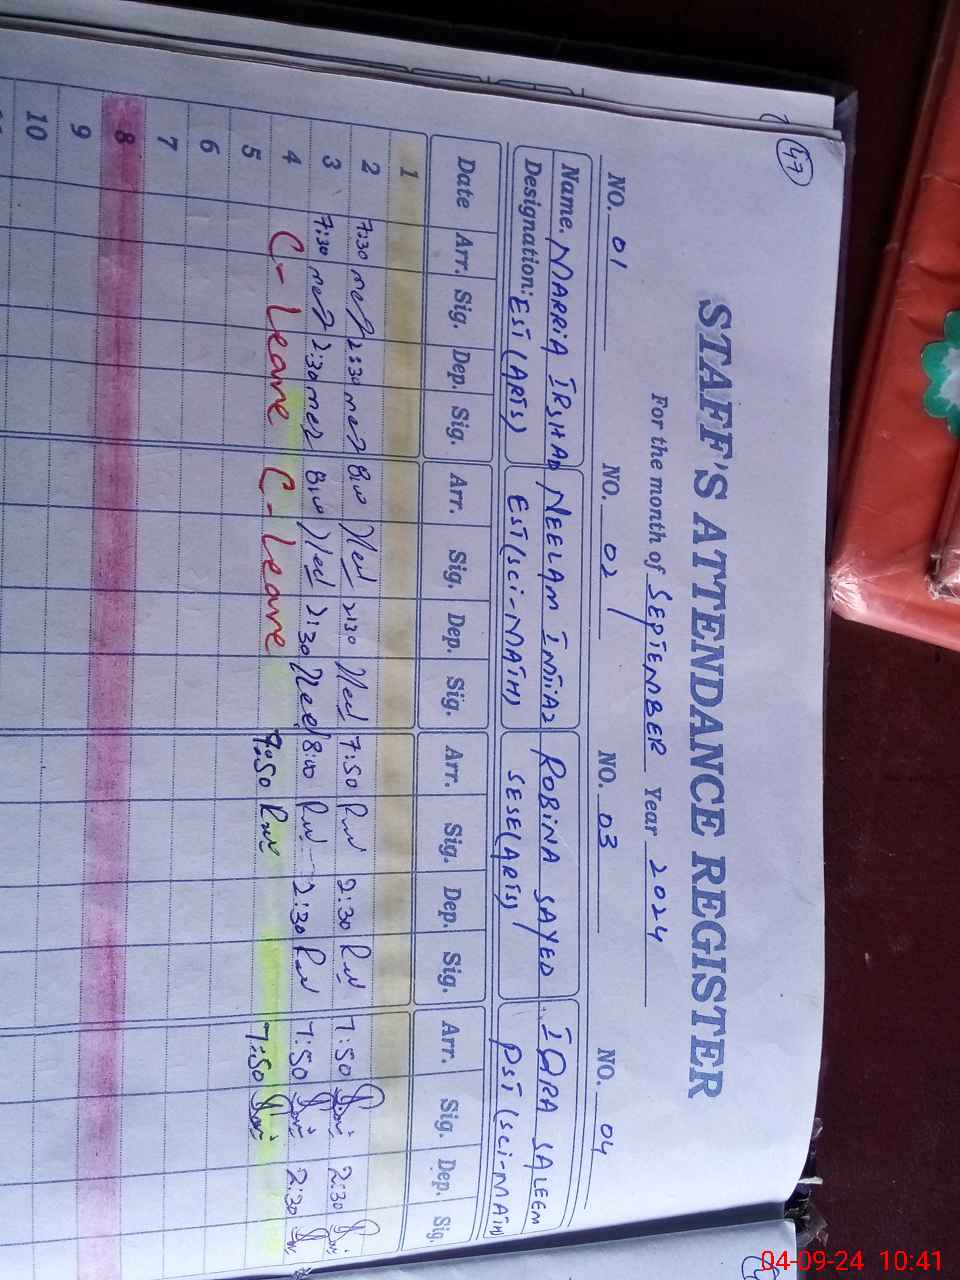 47
STAFF'S ATTENDANCE REGISTER
For the month of SEPTEMBER Year 2024
NO. 01 NO. 02 NO. 03 NO. 04
Name. MARRIA IRSHAD NEELAM IMTIAZ ROBINA SAYED IQRA SALEEM
Designation: EST (ARTS) EST (SCI-MATH) SESE (ARTS) PST (SCI-MATH)
Date Arr. Sig. Dep. Sig. Arr. Sig. Dep. Sig. Arr. Sig. Dep. Sig. Arr. Sig. Dep. Sig.
1
2 7:30 2:30 8:00 2:30 7:50 2:30 7:50 2:30
3 7:30 2:30 8:00 2:30 8:00 2:30 7:50 2:30
4 C-Leave C-Leave 7:50 7:50
5
6
7
8
9
10
04-09-24 10:41